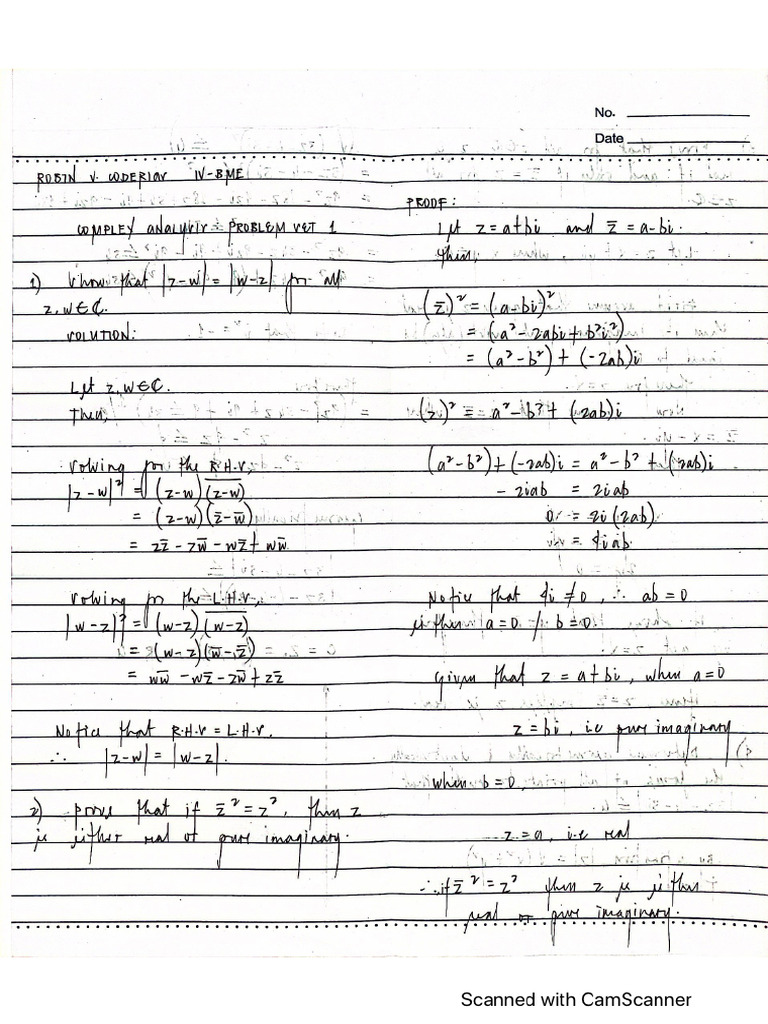 No.
Date
ROBIN V. CODERIAS IV-BME
COMPLEX ANALYSIS PROBLEM SET 1
1) Show that |z-w| = |w-z| for all
z, w ∈ ℂ.
SOLUTION:
Let z, w ∈ ℂ.
Then,
Solving for the R.H.S,
|z-w|² = (z-w)(\overline{z-w})
= (z-w)(z̄-w̄)
= zz̄ - zw̄ - wz̄ + ww̄
Solving for the L.H.S,
|w-z|² = (w-z)(\overline{w-z})
= (w-z)(w̄-z̄)
= ww̄ - wz̄ - zw̄ + zz̄
Notice that R.H.S = L.H.S.
∴ |z-w| = |w-z|.
2) Prove that if z̄² = z², then z
is either real or pure imaginary.
PROOF:
Let z = a+bi and z̄ = a-bi.
Then,
(z̄)² = (a-bi)²
= (a² - 2abi + b²i²)
= (a² - b²) + (-2ab)i
(z)² = a² - b² + (2ab)i
(a² - b²) + (-2ab)i = a² - b² + (2ab)i
-2iab = 2iab
0 = 2i(2ab)
= 4iab
Notice that 4i ≠ 0, ∴ ab = 0
either a=0 / b=0.
Given that z = a+bi, when a=0
z = bi, i.e pure imaginary
when b=0,
z = a, i.e real
∴ if z̄² = z² then z is either
real or pure imaginary.
Scanned with CamScanner